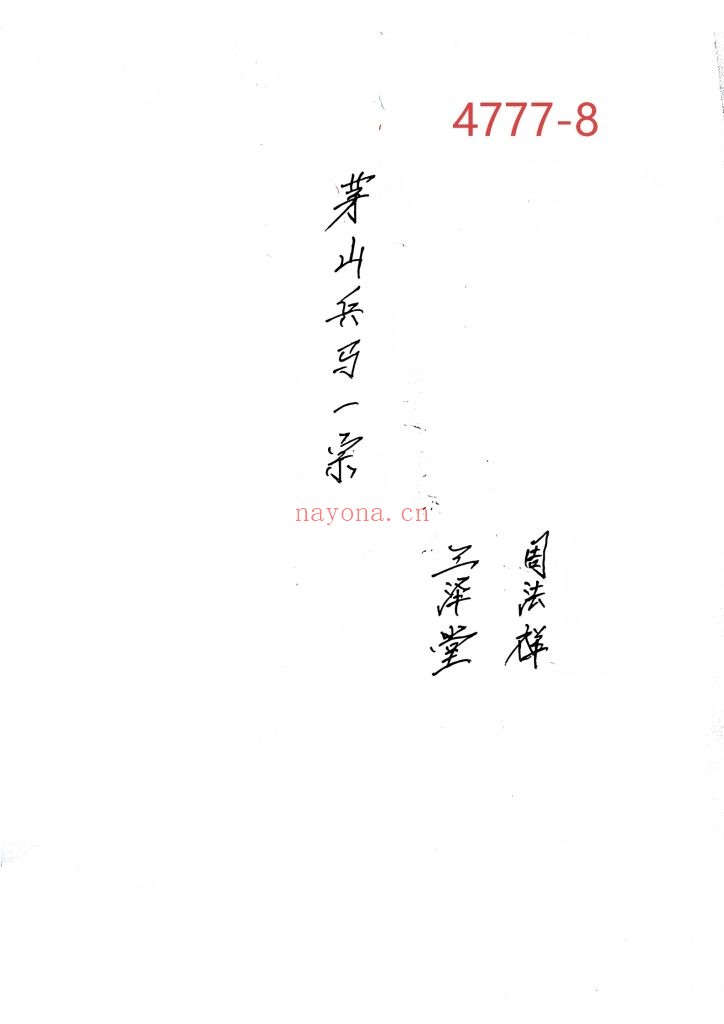 4777-8
茅山兵马一宗
nayona.cn
周法祥
兰泽堂